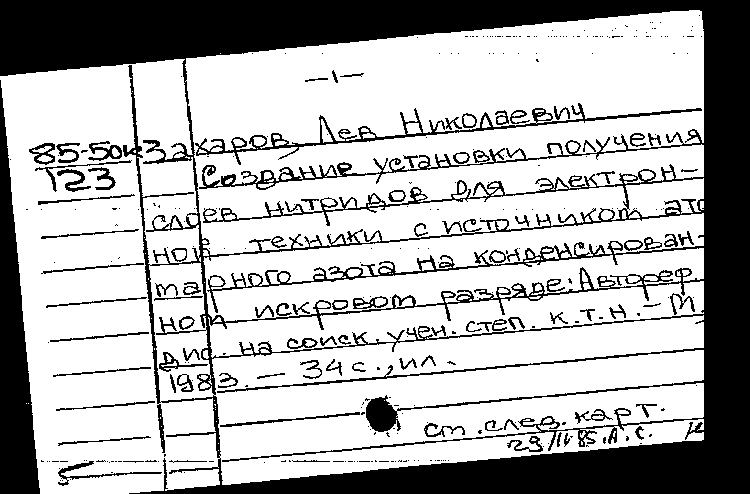 —1—
85-50к3 Захаров, Лев Николаевич
123 Создание установки получения
слоев нитридов для электрон-
ной техники с источником ато
марного азота на конденсирован-
ном искровом разряде: Автореф.
дис. на соиск. учен. степ. к.т.н. — М.,
1983. — 34 с., ил.
см. след. карт.
29/IV85. А.С.